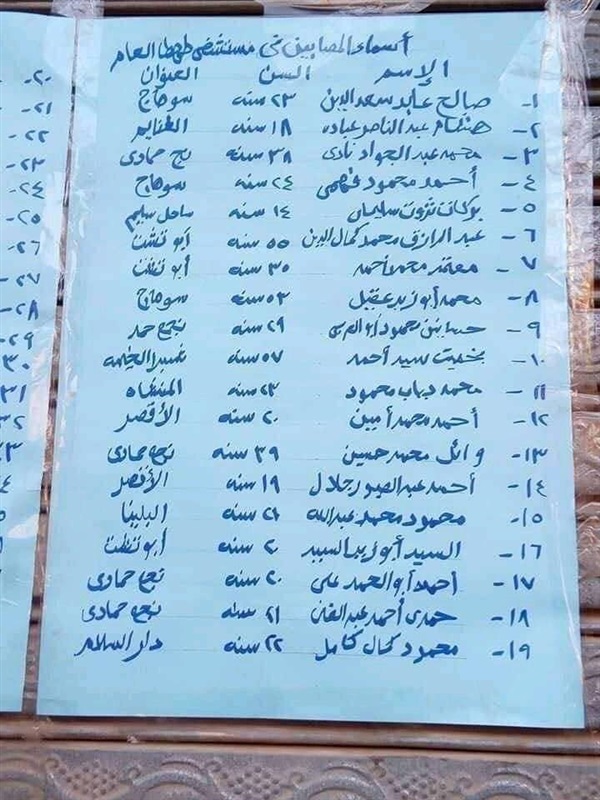 أسماء المصابين فى مستشفى طهطا العام
الإسم السن العنوان
١- صالح عابد سعد الدين ٢٣ سنه سوهاج
٢- هشام عبد الناصر عباده ١٨ سنه الغنايم
٣- محمد عبد الجواد نادى ٣٨ سنه نجع حمادى
٤- أحمد محمود فهمى ٢٤ سنه سوهاج
٥- بركات ثروت سليمان ١٤ سنه ساحل سليم
٦- عبد الرازق محمد كمال الدين ٥٥ سنه أبو تشت
٧- معتمد محمد أحمد ٣٥ سنه أبو تشت
٨- محمد أبو زيد عقيل ٥٣ سنه سوهاج
٩- محمود ٢٩ سنه نجع حمد
١٠- بخيت سيد أحمد ٥٧ سنه شبرا الخيمه
١١- محمد دياب محمود ٢٣ سنه المنشاه
١٢- أحمد محمد أمين ٢٠ سنه الأقصر
١٣- وائل محمد حسين ٣٩ سنه نجع حمادى
١٤- أحمد عبد الصبور جلال ١٩ سنه الأقصر
١٥- محمود محمد عبد الله ٢١ سنه البلينا
١٦- السيد أبو زيد السيد ٢٠ سنه أبو تشت
١٧- أحمد أبو الحمد على ٢٠ سنه نجع حمادى
١٨- حمدى أحمد عبد الغنى ٢١ سنه نجع حمادى
١٩- محمود كمال كامل ٢٢ سنه دار السلام
٢٠-
٢١-
٢٢-
٢٣-
٢٤-
٢٥-
٢٦-
٢٧-
٢٨-
٢٩-
٣٠
٣١